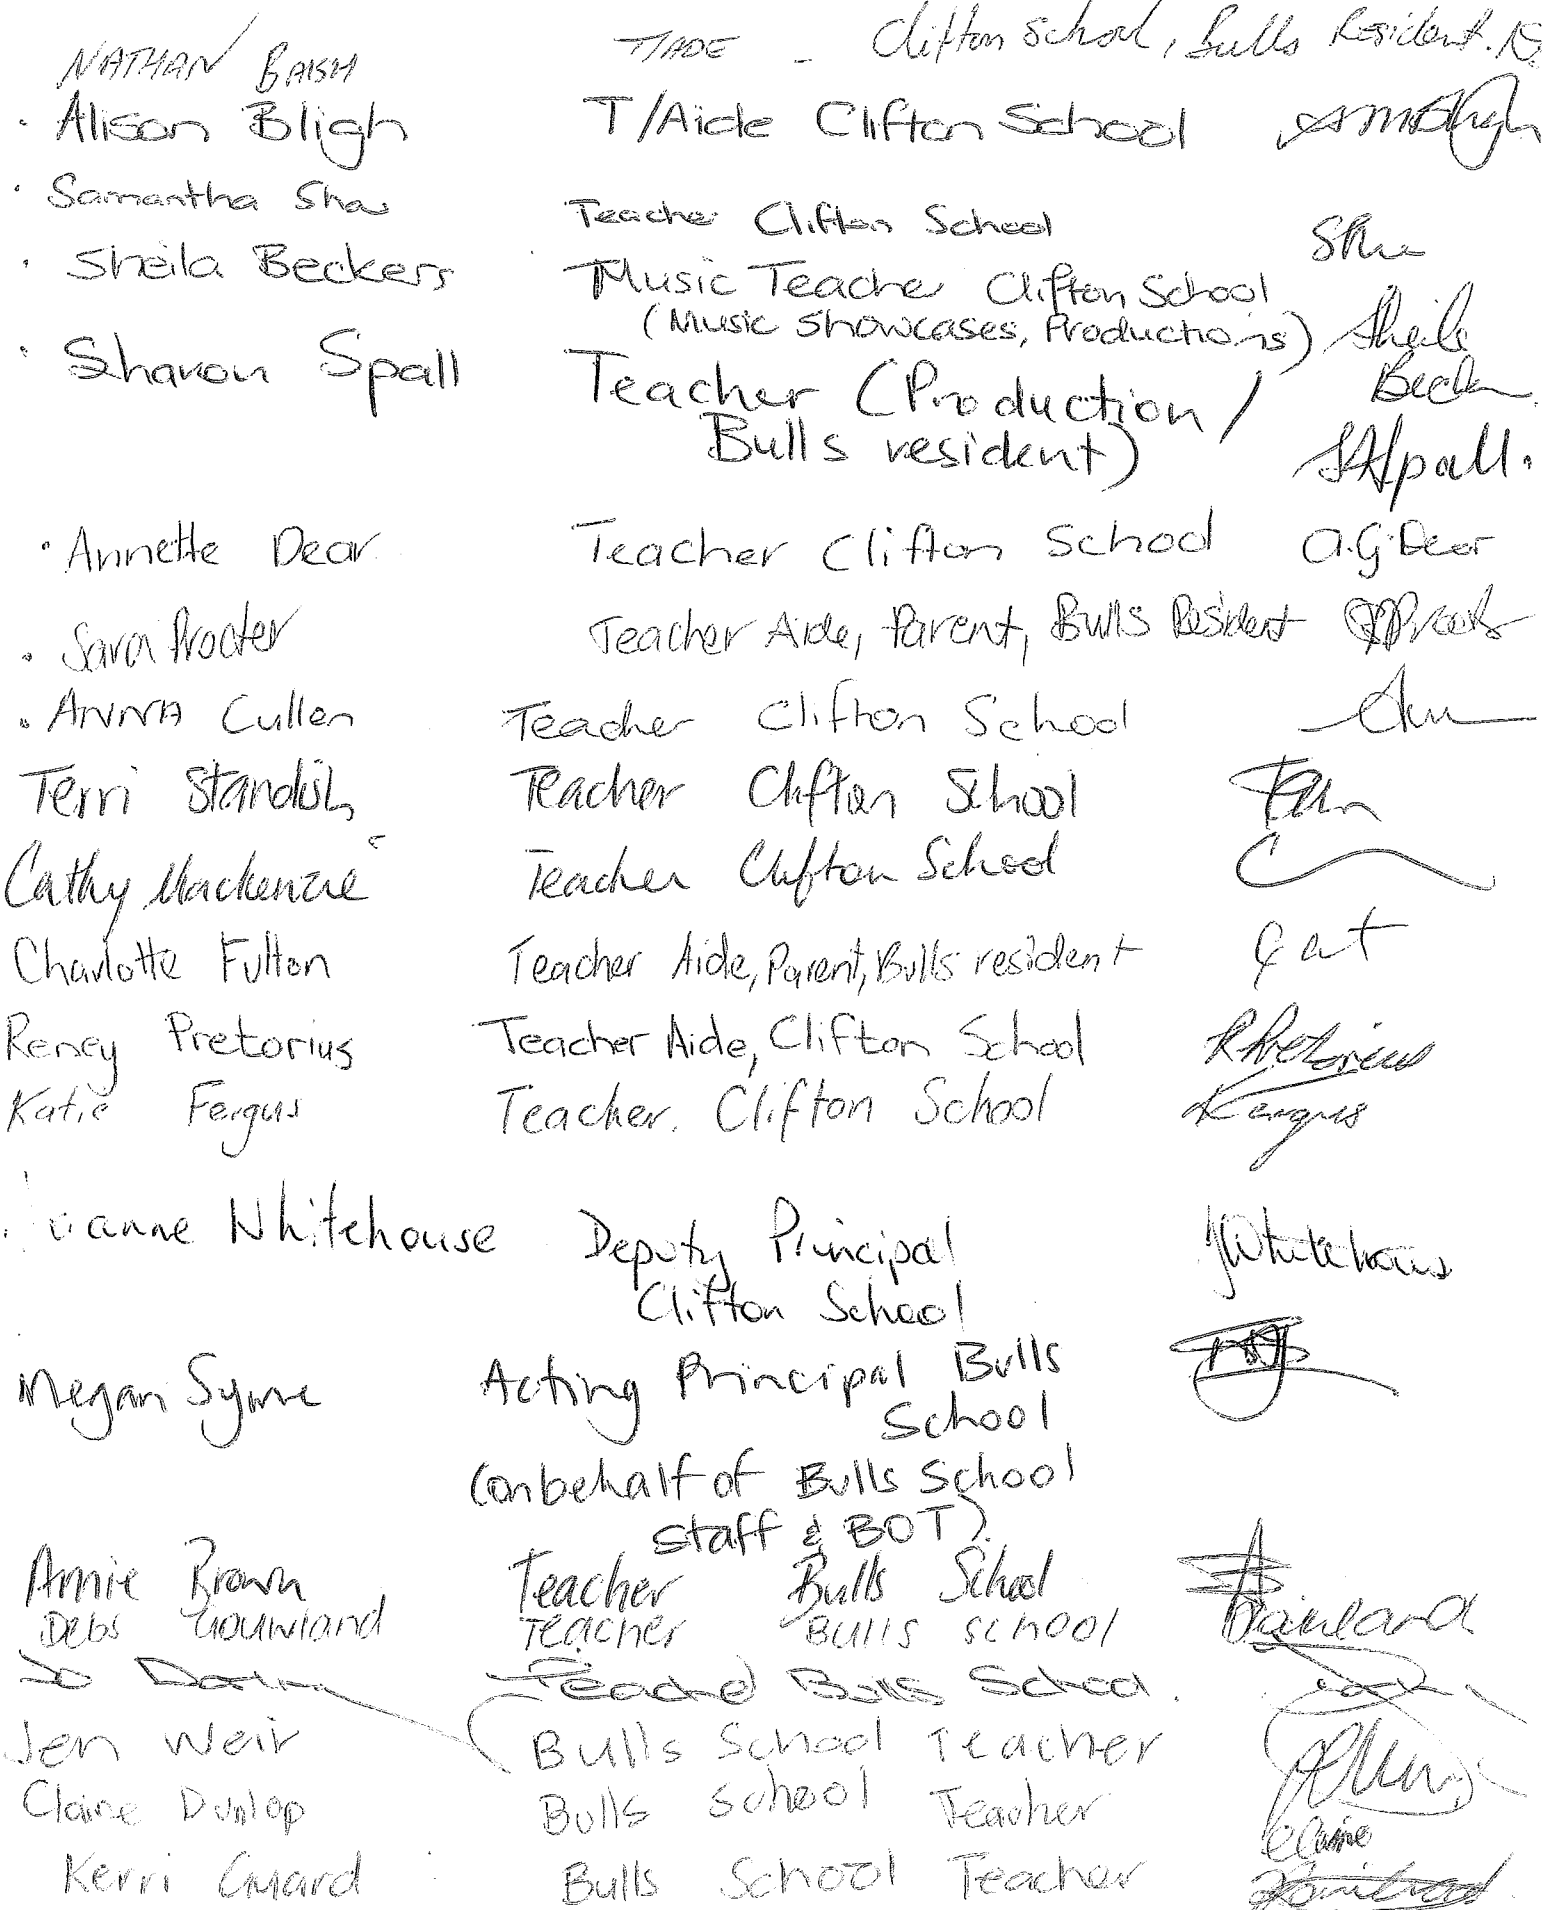 NATHAN BAISH T/AIDE - Clifton School, Bulls Resident.
· Alison Bligh T/Aide Clifton School
· Samantha Shaw Teacher Clifton School
· Sheila Beckers Music Teacher Clifton School
(Music Showcases, Productions) Sheila
Beckers
· Sharon Spall Teacher (Production /
Bulls resident) SASpall.
· Annette Dear Teacher Clifton School A.G. Dear
· Sara Procter Teacher Aide, Parent, Bulls Resident
· ANNA Cullen Teacher Clifton School
Terri Standish Teacher Clifton School
Cathy Mackenzie Teacher Clifton School
Charlotte Fulton Teacher Aide, Parent, Bulls resident
Reney Pretorius Teacher Aide, Clifton School RPretorius
Katie Fergus Teacher. Clifton School KFergus
Whitehouse Deputy Principal JWhitehouse
Clifton School
Megan Syme Acting Principal Bulls
School
(on behalf of Bulls School
staff & BOT)
Annie Brown Teacher Bulls School
Debs Teacher Bulls School
Jo Teacher Bulls School.
Jen Weir Bulls School Teacher
Claire Dunlop Bulls School Teacher
Claire
Kerri Bulls School Teacher